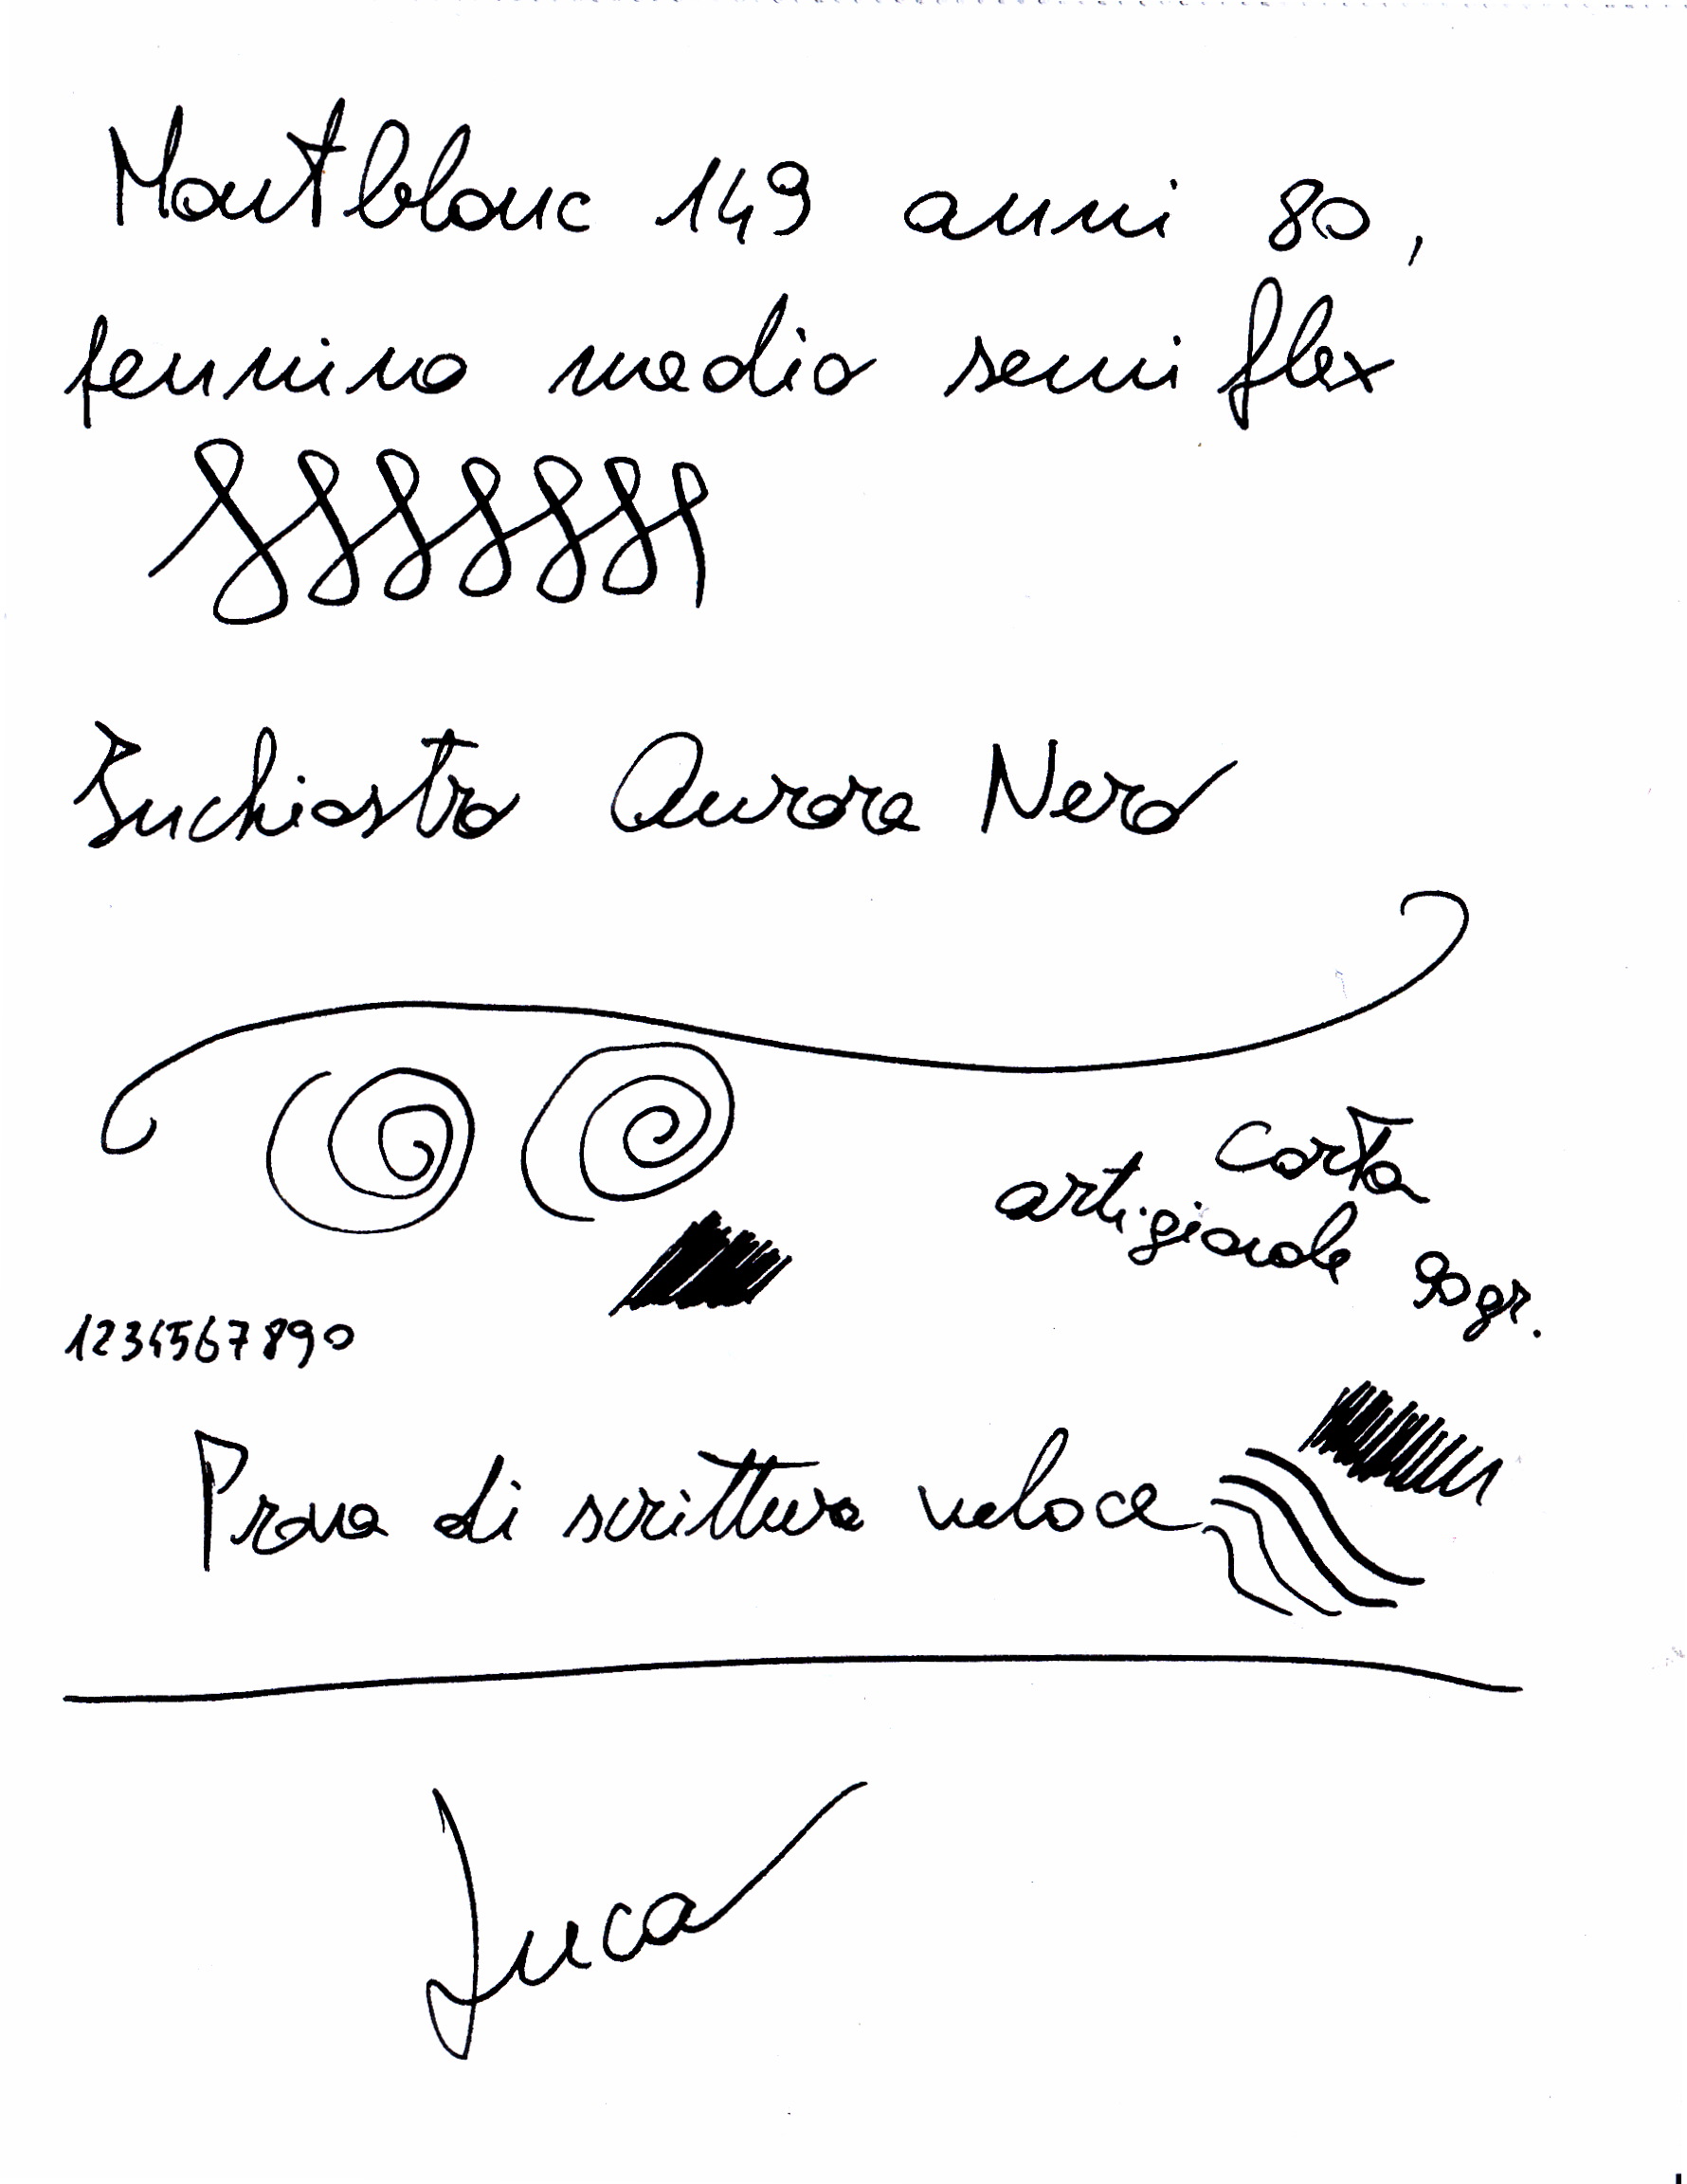 Montblanc 149 anni 80,
pennino medio semi flex
Inchiostro Aurora Nero
Carta
artigianale 90 gr.
1234567890
Prova di scrittura veloce
Luca